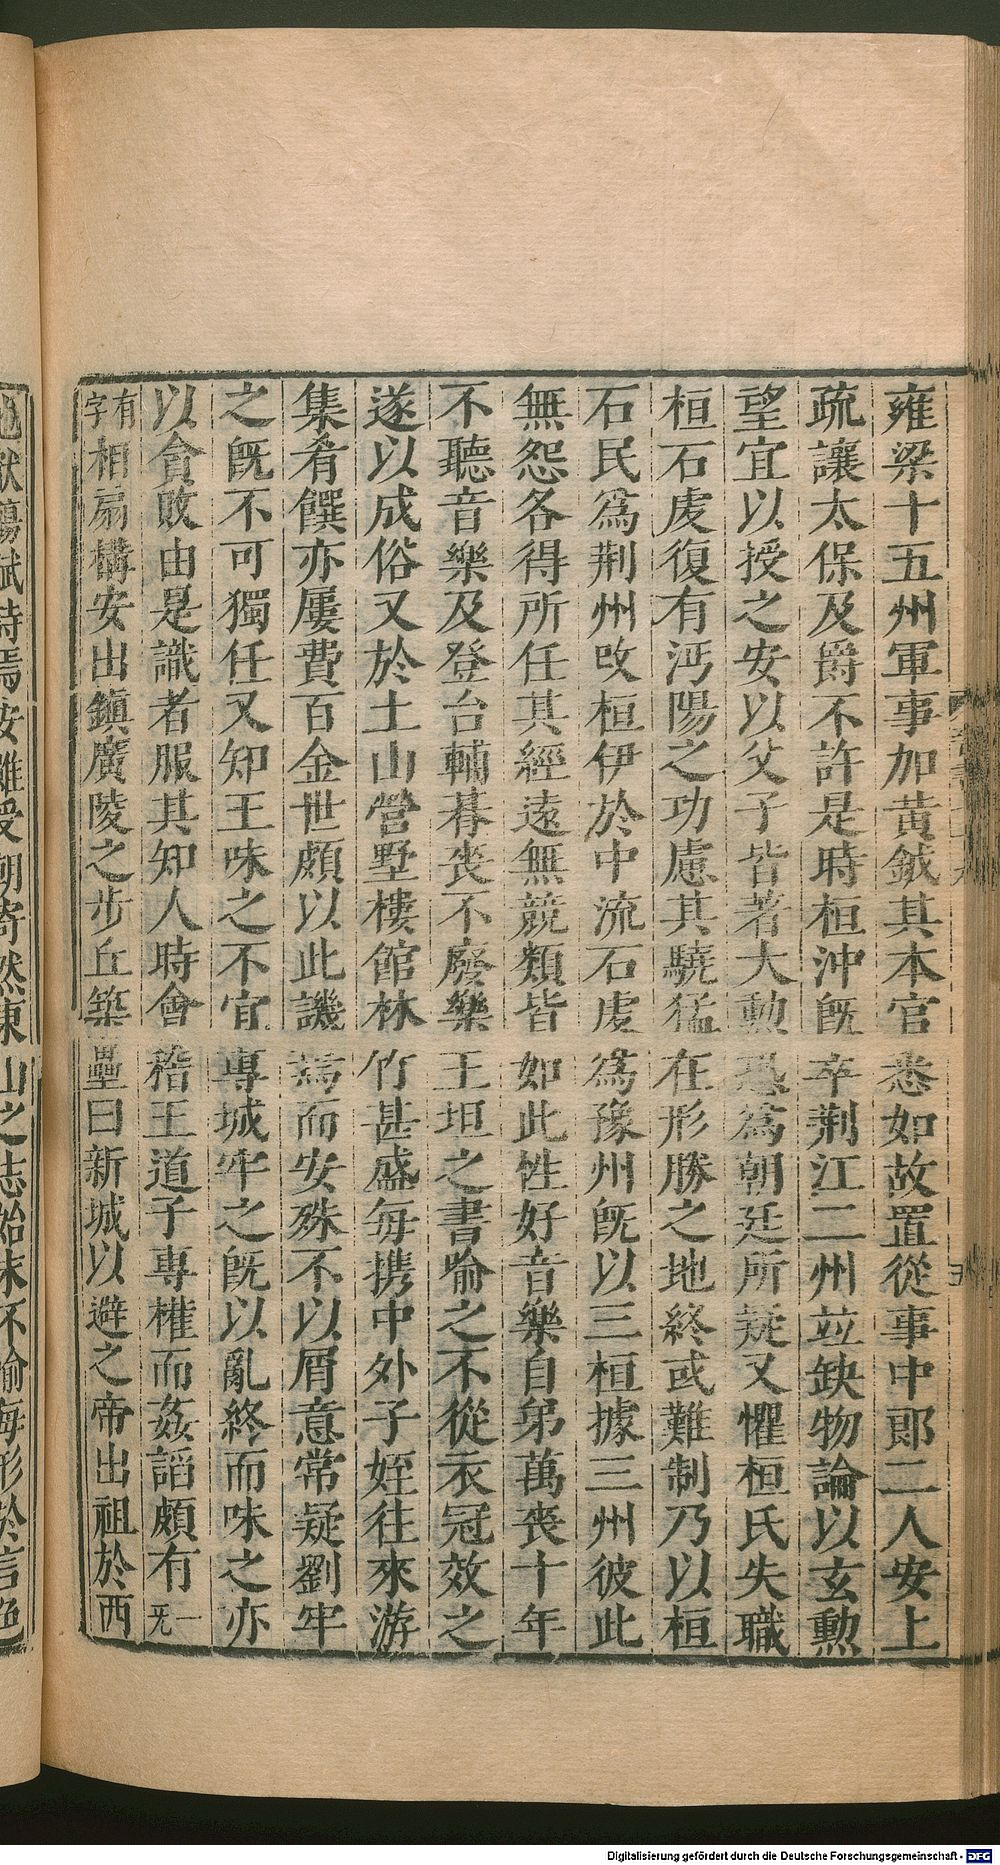 雍梁十五州軍事加黃鉞其本官悉如故置從事中郎二人安上
疏讓太保及爵不許是時桓沖旣卒荆江二州並缺物論以玄勲
望宜以授之安以父子皆著大勲恐爲朝廷所疑又懼桓氏失職
桓石虔復有沔陽之功慮其驍猛在形勝之地終或難制乃以桓
石民爲荆州改桓伊於中流石虔爲豫州旣以三桓據三州彼此
無怨各得所任其經遠無競類皆如此性好音樂自弟萬喪十年
不聽音樂及登台輔朞喪不廢樂王坦之書喻之不從衣冠效之
遂以成俗又於土山營墅樓館林竹甚盛每携中外子姪往來游
集肴饌亦屢費百金世頗以此譏焉而安殊不以屑意常疑劉牢
之旣不可獨任又知王味之不宜專城牢之旣以亂終而味之亦
以貪敗由是識者服其知人時會稽王道子專權而姦謟頗有一旡
有字相扇構安出鎭廣陵之步丘築壘曰新城以避之帝出祖於西
賦詩焉安雖受朝寄然東山之志始末不渝每形於言色
Digitalisierung gefördert durch die Deutsche Forschungsgemeinschaft - DFG